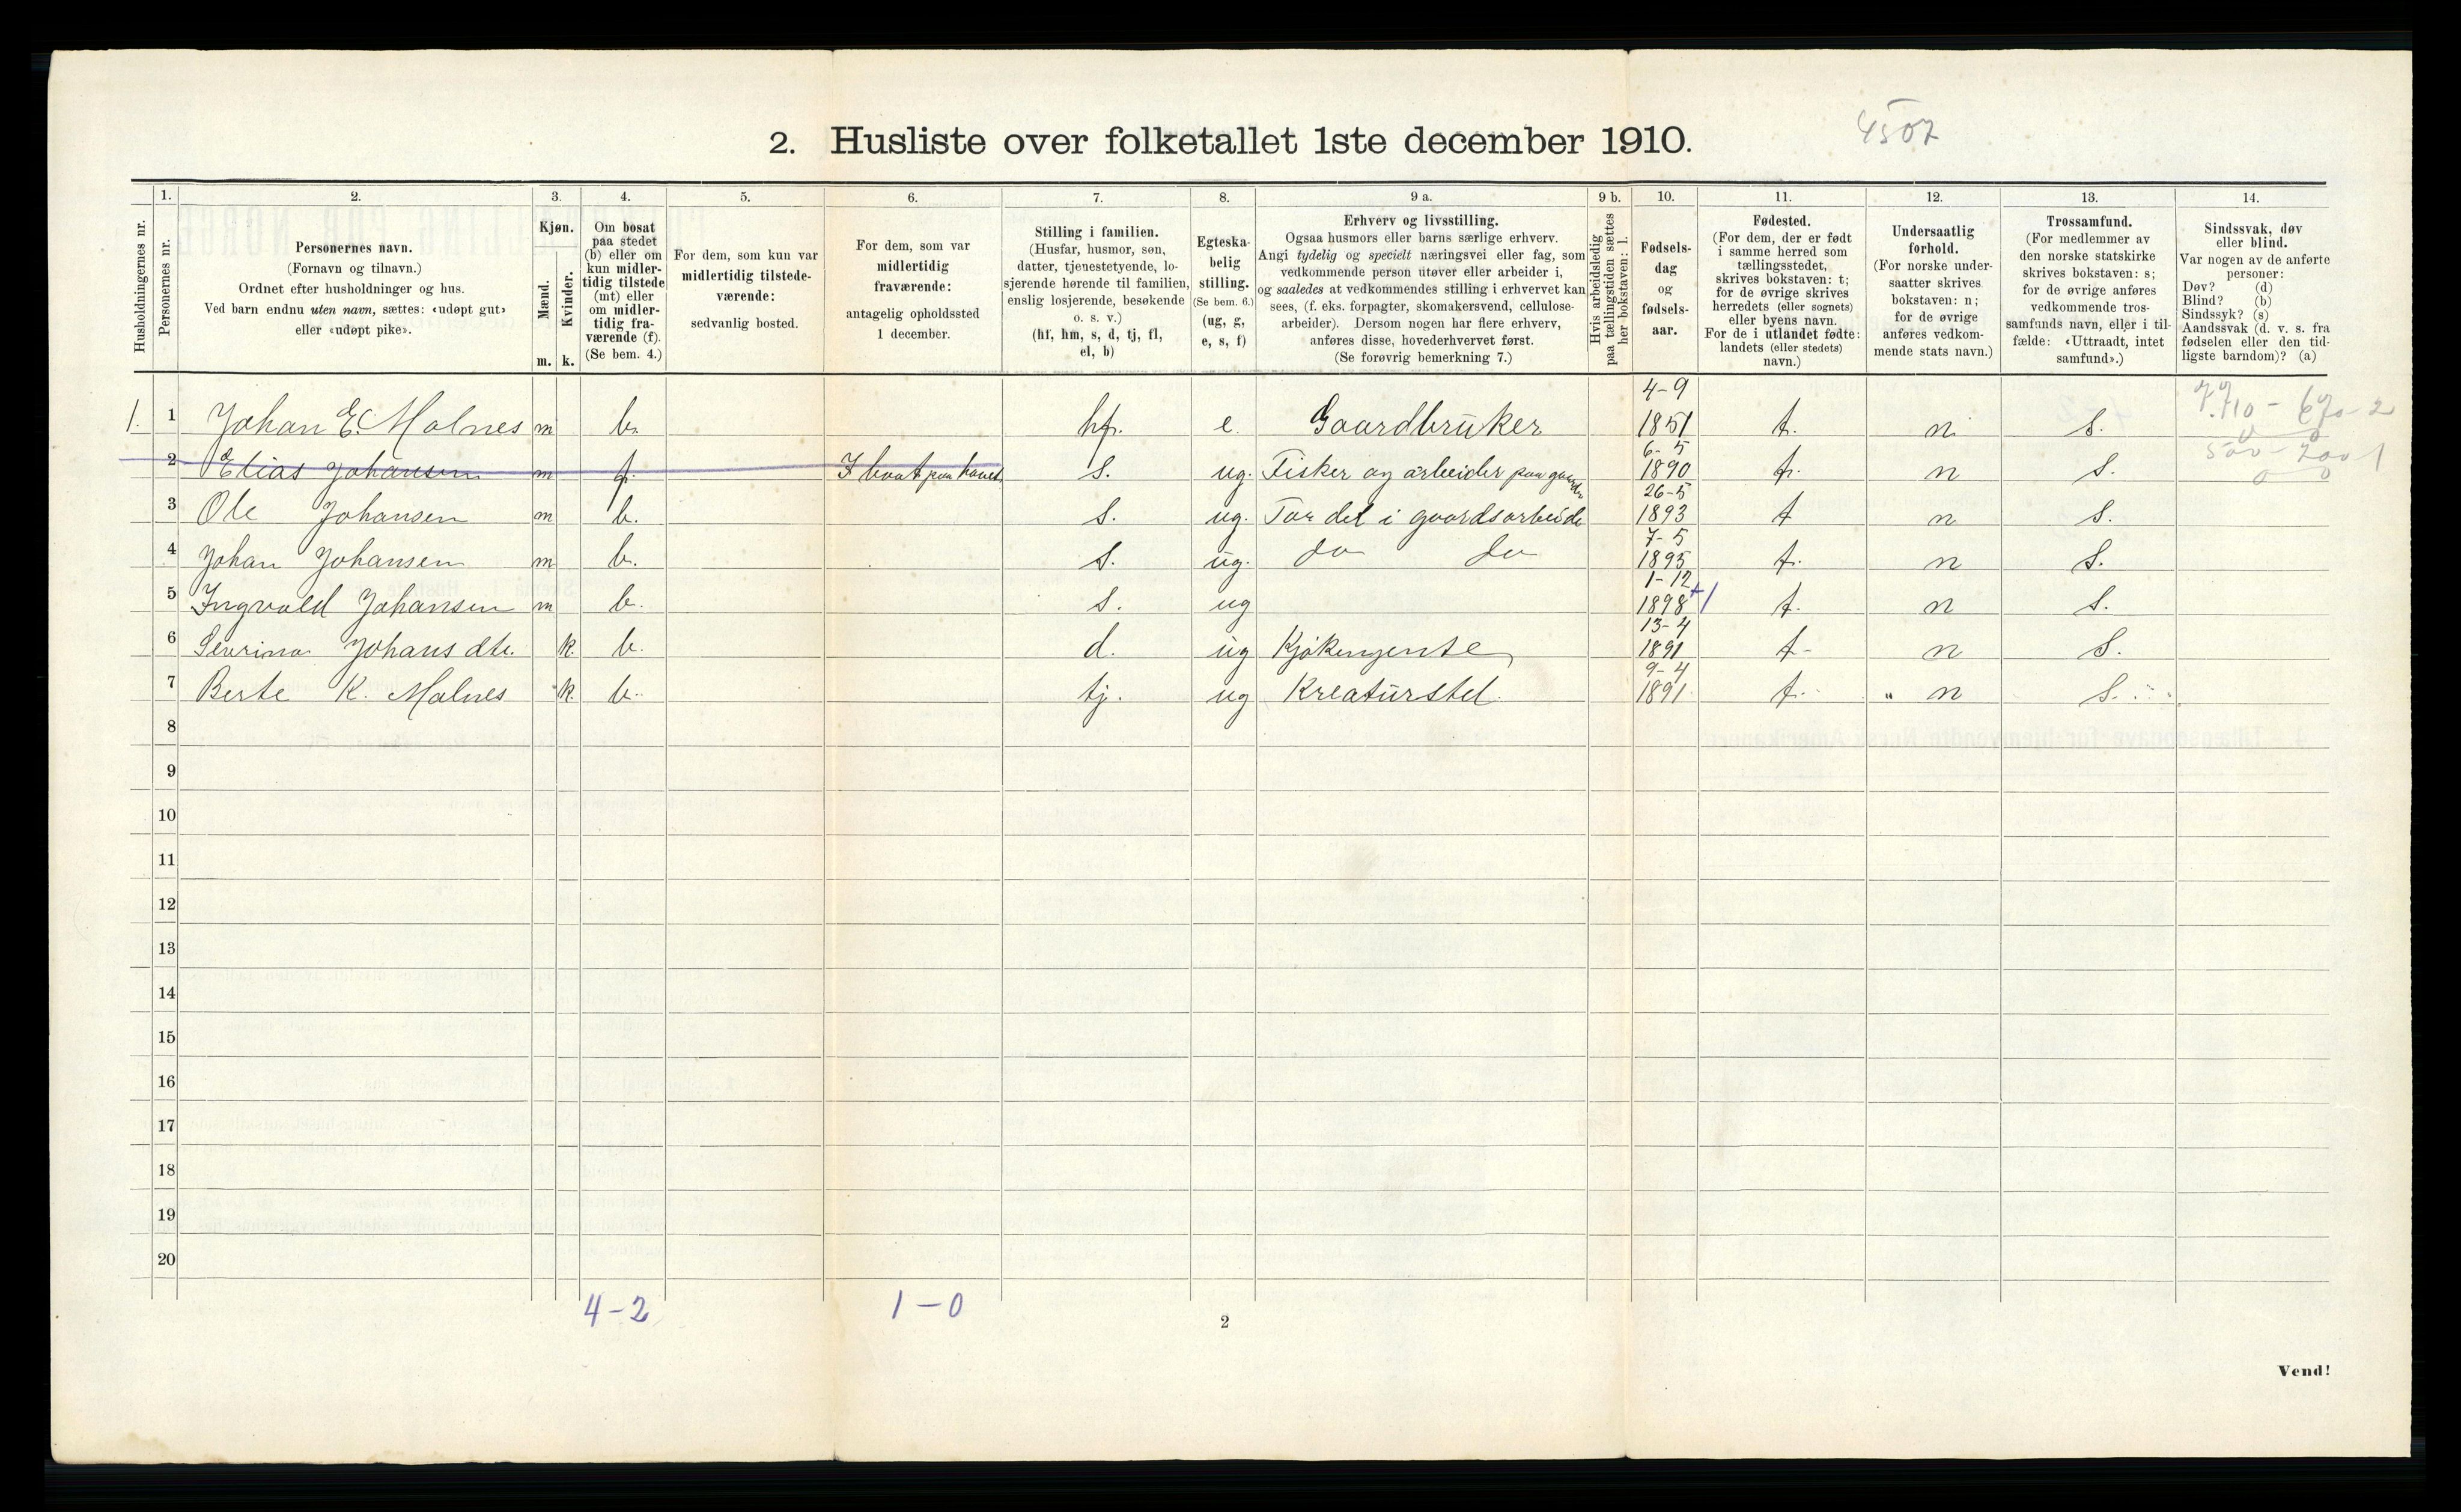 2. Husliste over folketallet 1ste december 1910.
4507
Husholdningernes nr.
1.
Personernes nr.
2.
Personernes navn.
(Fornavn og tilnavn.)
Ordnet efter husholdninger og hus.
Ved barn endnu uten navn, sættes: «udøpt gut»
eller «udøpt pike».
3.
Kjøn.
Mænd.
Kvinder.
m. k.
4.
Om bosat
paa stedet
(b) eller om
kun midler-
tidig tilstede
(mt) eller
om midler-
tidig fra-
værende (f).
(Se bem. 4.)
5.
For dem, som kun var
midlertidig tilstede-
værende:
sedvanlig bosted.
6.
For dem, som var
midlertidig
fraværende:
antagelig opholdssted
1 december.
7.
Stilling i familien.
(Husfar, husmor, søn,
datter, tjenestetyende, lo-
sjerende hørende til familien,
enslig losjerende, besøkende
o. s. v.)
(hf, hm, s, d, tj, fl,
el, b)
8.
Egteska-
belig
stilling.
(Se bem. 6.)
(ug, g,
e, s, f)
9 a.
Erhverv og livsstilling.
Ogsaa husmors eller barns særlige erhverv.
Angi tydelig og specielt næringsvei eller fag, som
vedkommende person utøver eller arbeider i,
og saaledes at vedkommendes stilling i erhvervet kan
sees, (f. eks. forpagter, skomakersvend, cellulose-
arbeider). Dersom nogen har flere erhverv,
anføres disse, hovederhvervet først.
(Se forøvrig bemerkning 7.)
9 b.
Hvis arbeidsledig
paa tællingstiden sættes
her bokstaven: l.
10.
Fødsels-
dag
og
fødsels-
aar.
11.
Fødested.
(For dem, der er født
i samme herred som
tællingsstedet,
skrives bokstaven: t;
for de øvrige skrives
herredets (eller sognets)
eller byens navn.
For de i utlandet fødte:
landets (eller stedets)
navn.)
12.
Undersaatlig
forhold.
(For norske under-
saatter skrives
bokstaven: n;
for de øvrige
anføres vedkom-
mende stats navn.)
13.
Trossamfund.
(For medlemmer av
den norske statskirke
skrives bokstaven: s;
for de øvrige anføres
vedkommende tros-
samfunds navn, eller i til-
fælde: «Uttraadt, intet
samfund».)
14.
Sindssvak, døv
eller blind.
Var nogen av de anførte
personer:
Døv? (d)
Blind? (b)
Sindssyk? (s)
Aandssvak (d. v. s. fra
fødselen eller den tid-
ligste barndom)? (a)
1. 1 Johan E. Molnes m b. hf. e. Gaardbruker 4-9 1851 t. n. s.
2 Elias Johansen m f. I baat paa havet s. ug. Fisker og arbeider paa gaarden 6-5 1890 t. n s.
3 Ole Johansen m b. s. ug. Tar del i gaardsarbeide 26-5 1893 t n s.
4 Johan Johansen m b. s. ug. do do 7-5 1895 t. n s.
5 Ingvald Johansen m b. s. ug 1-12 1898 +1 t. n s.
6 Severina Johansdtr. k. b. d. ug Kjøkenjente 13-4 1891 t- n s.
7 Berte K. Molnes k. b. tj. ug Kreaturstel 9-4 1891 t. " n s.
8
9
10
11
12
13
14
15
16
17
18
19
20
4-2 1-0
2
Vend!